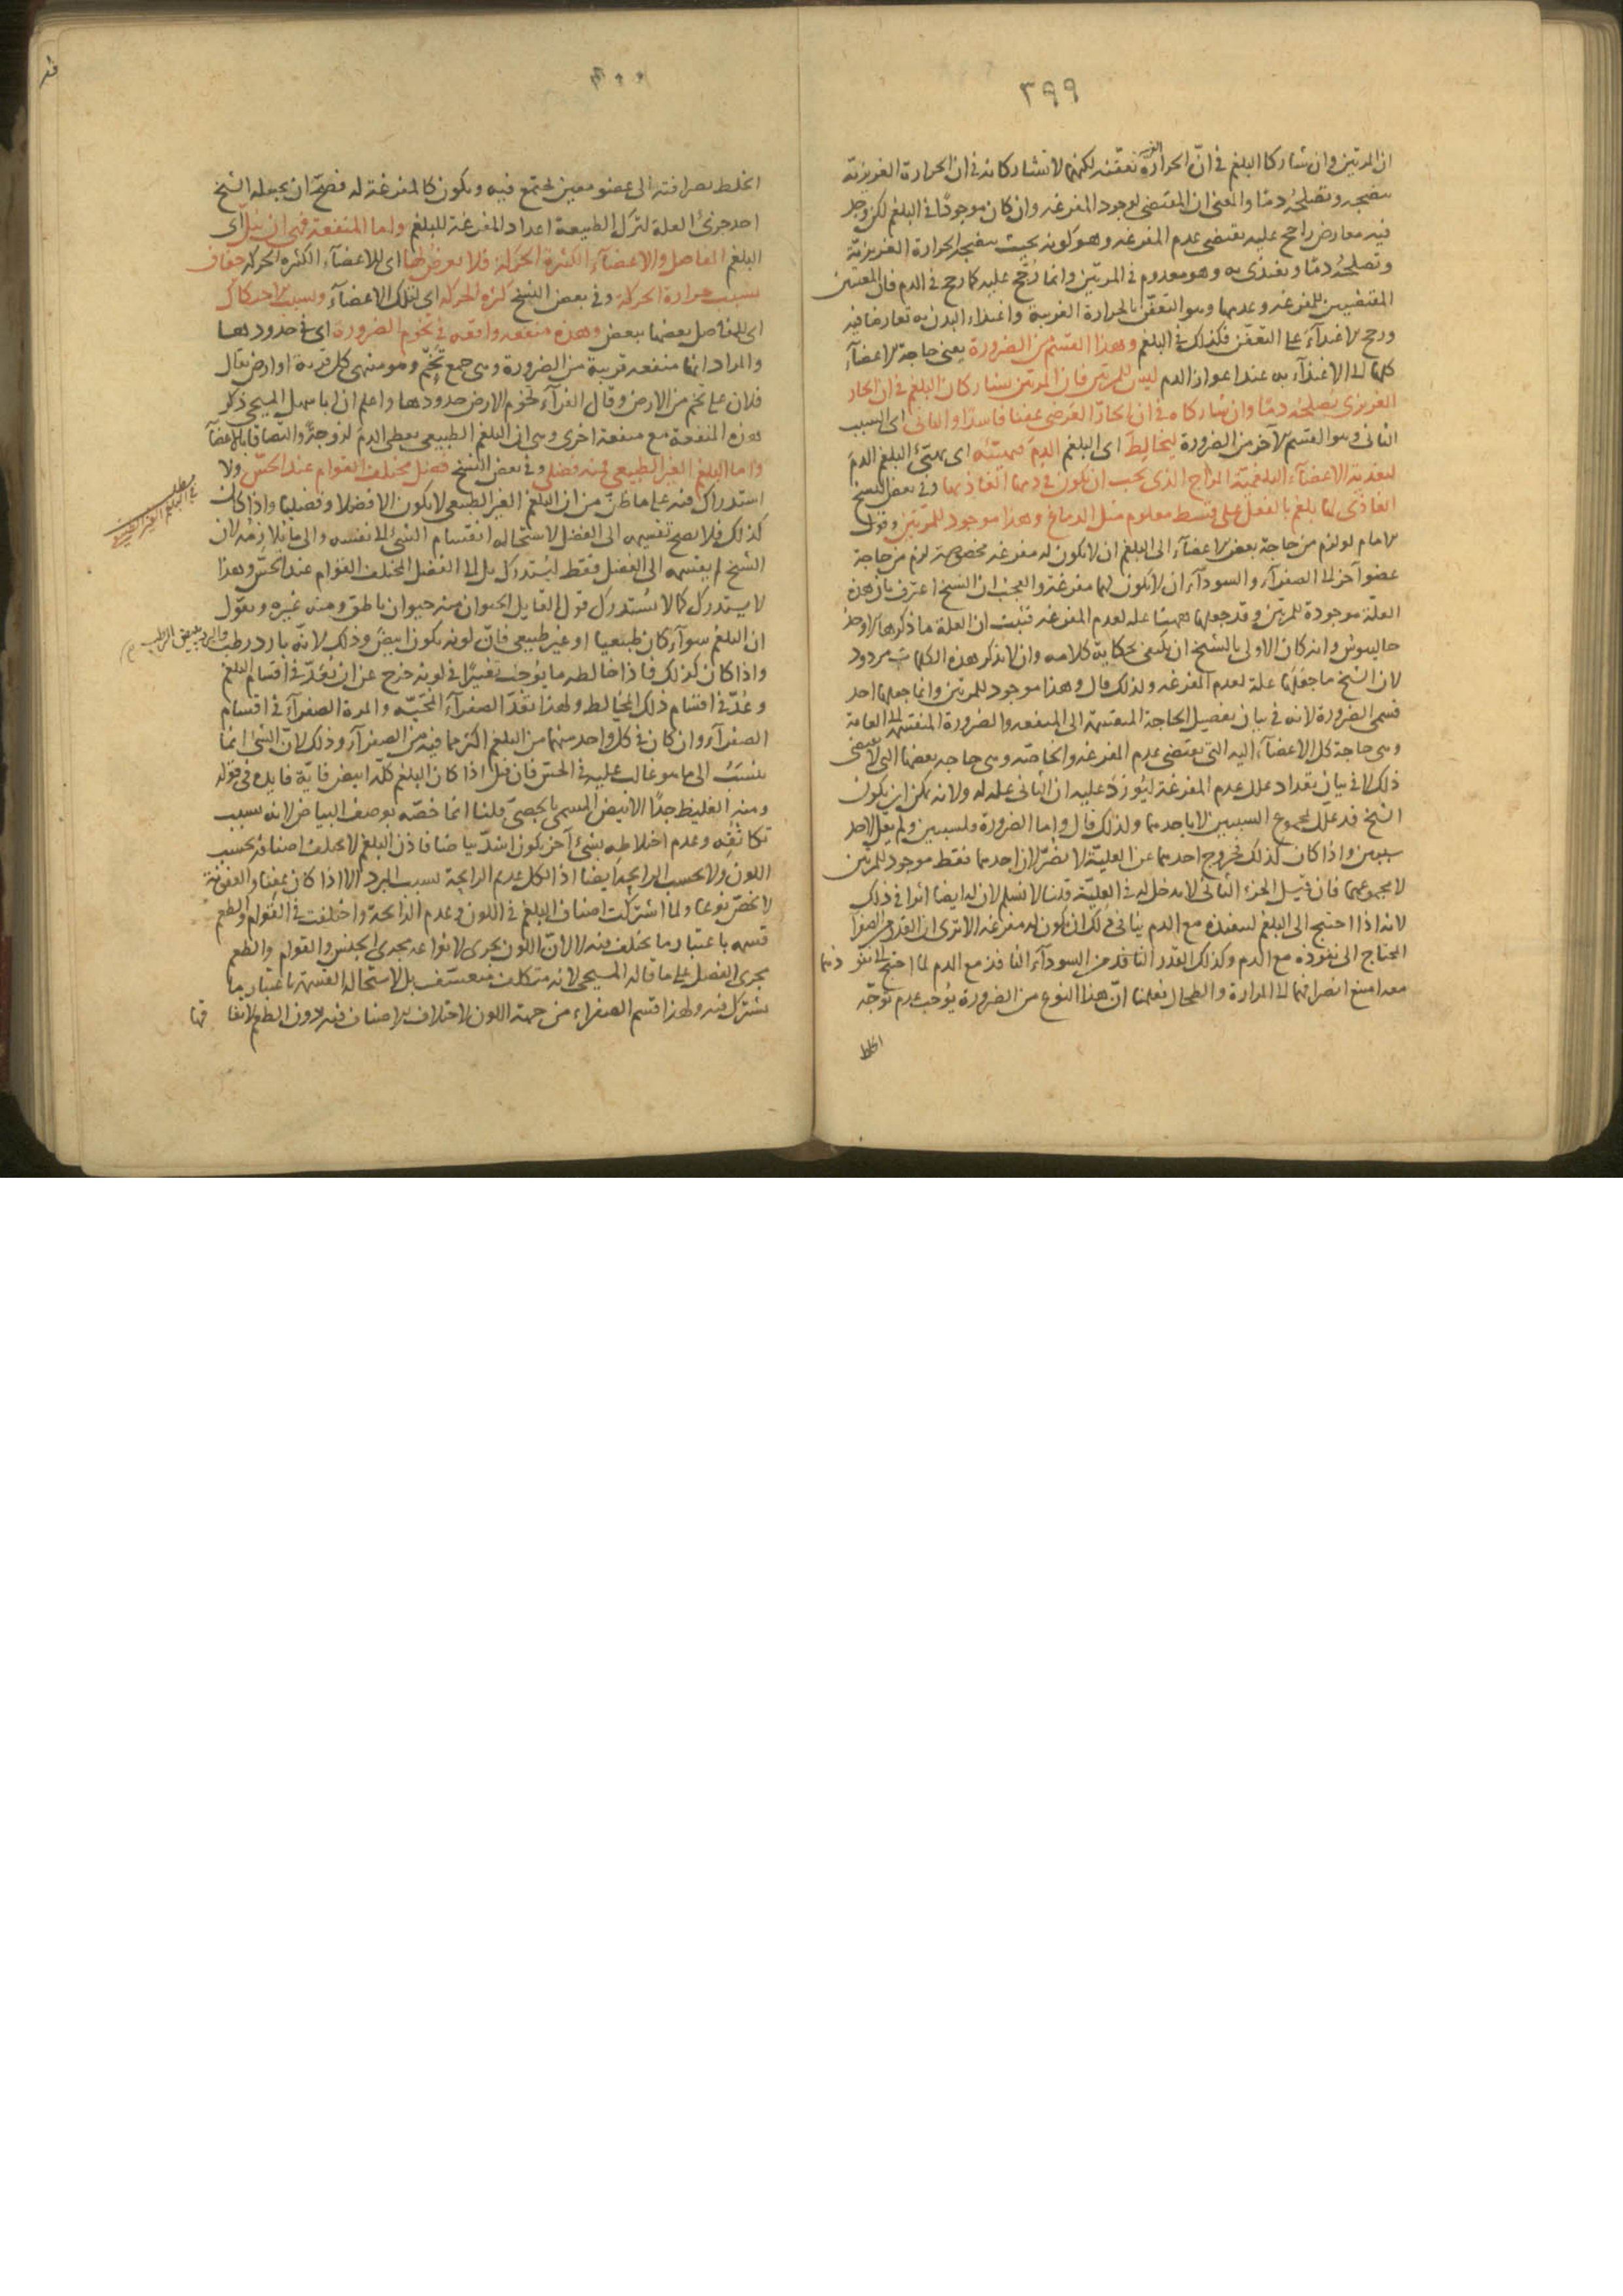 ٣٩٩
ان المرتين وان شاركا البلغم في انّ الحرارة الغريبة تعفّنه لكنهما لا تشاركانه في ان الحرارة الغريزيّة
تنضجه وتصلحُه دمًا والمعنى ان المقتضي لوجود المفرغه وان كان موجودًا في البلغم لكن وجد
فيه معارض راجح عليه يقتضي عدم المفرغه وهو كونه بحيث ينضجه الحرارة الغريزيّة
وتصلحُه دمًا ويغتذى به وهو معدوم في المرتين وانما رُجّح عليه كما رجح في الدم فان المعنيين
المقتضيين للمفرغه وعدمها وهو التعفّن بالحرارة الغريبة واغتذاء البدن به تعارضا فيه
ورجح الاغتذآء على التعفّن فكذلك في البلغم وهذا القسم من الضرورة يعني حاجة الاعضآء
كلها الى الاغتذآء به عند اعواز الدم ليس للمرتين فان المرتين تشاركان البلغم في ان الحار
الغريزي يُصلحُه دمًا وان شاركاه في ان الحارّ العَرَضي عفنا فاسدًا والثاني اى السبب
الثاني وهو القسم الآخر من الضرورة ليخالِط اى البلغم الدمَ فيهيّئه اى يهيّئ البلغم الدمَ
لتغذية الاعضآء البلغمية المزاج الذى يجب ان يكون في دمها الغاذيها وفي بعض النسخ
الغاذى لها بلغم بالفعل على قسط معلوم مثل الدماغ وهذا موجود للمرتين وقول
الامام لو لزم من حاجة بعض الاعضآء الى البلغم ان لا يكون له مفرغه مخصوصة لزم من حاجة
عضو آخر الى الصفرآء والسودآء ان لا تكون لهما مفرغة والعجب ان الشيخ اعترف بان هذه
العلّة موجودة للمرتين وقد جعلها ههنا علة لعدم المفرغه فثبت ان العلة ما ذكرها الاوحد
جالينوس وانه كان الاولى بالشيخ ان يكتفى بحكاية كلامه وان لا يذكر هذه الكلمات مردود
لان الشيخ ما جعَلَها علة لعدم المفرغه ولذلك قال وهذا موجود للمرتين وانما جعلها احد
قسمى الضرورة لانه في بيان تفصيل الحاجة المنقسمة الى المنفعه والضرورة المنقسمة الى العامة
وهي حاجة كل الاعضآء اليه التي يقتضى عدم المفرغه والخاصّه وهي حاجه بعضها التي لا يقتضى
ذلك لا في بيان تعداد علل عدم المفرغة ليُورَدَ عليه ان الثاني علة له ولانه يمكن ان يكون
الشيخ قد علّل بمجموع السببين لا باحدهما ولذلك قال واما الضرورة فلسببين ولم يقل لاحد
سببين واذا كان كذلك فخروج احدهما عن العليّة لا يضرّ لان احدهما فقط موجود للمرتين
لا مجموعهما فان قيل الجزء الثاني لا مدخل له في العِليّة قلنا لا نسلم لان له ايضا اثرا في ذلك
لانه اذا احتيج الى البلغم لينفذه مع الدم ينافي ذلك ان يكون له مفرغه الا ترى ان القدر من الصفرا
المحتاج الى نفوذه مع الدم وكذلك القدر النافذ من السودآء النافذ مع الدم لما احتيج الى نفوذهما
معه امتنع انصرافهما الى المرارة والطحال فعلمنا انّ هذا النوع من الضرورة يُوجب عدم توجّه
الخلط
٤٠٠
الخلط بصرافته الى عضو معين يجتمع فيه ويكون كالمفرغة له فصحّ ان يجعله الشيخ
احد جزئي العلة لترك الطبيعة اعداد المفرغة للبلغم واما المنفعة فهي ان يبُلّ اى
البلغم المفاصل والاعضآء الكثيرة الحركة فلا يعرضُ لها اى للاعضآء الكثيره الحركه جفاف
بسبب حرارة الحركة وفي بعض النسخ كثرة الحركة اى لتلك الاعضآء وبسبب الاحتكاك
اى للمفاصل بعضها ببعض وهذه منفعه واقعه في تخوم الضرورة اى في حدودها
والمراد انها منفعه قريبة من الضرورة وهي جمع تَخْم وهو منتهى كل قرية او ارض يقال
فلان على تخم من الارض وقال الفرآء تخوم الارض حدودها واعلم ان ابا سهل المسيحى ذكر
هذه المنفعة مع منفعة اخرى وهي ان البلغم الطبيعي يعطى الدم لزوجةً والتصاقا بالاعضآ
واما البلغم الغير الطبيعي فمنه فضلى وفي بعض النسخ فضل مختلف القوام عند الحسّ ولا
استدراك فيه على ما ظنّ من ان البلغم الغير الطبيعي لا يكون الا فضلا وفضليا واذا كان
كذلك فلا يصح تقسيمه الى الفضل لاستحالة انقسام الشئ الى نفسه والى ما يلازمُه لان
الشيخ لم يقسمه الى الفضل فقط ليُستدرَك بل الى الفضل المختلف القوام عند الحسّ وهذا
لا يستدرك كما لا يُستدرك قول القايل الحيوان منه حيوان ناطق ومنه غيره ويقول
ان البلغم سوآء كان طبيعيا او غير طبيعي فانّ لونه يكون ابيضَ وذلك لانّه بارد رطب والبرد يبيض الرطب
واذا كان كذلك فاذا خالطه ما يُوجبُ تغيّرًا في لونه خرج عن ان يُعدّ في اقسام البلغم
وعُدّ في اقسام ذلك المخالط ولهذا تعدّ الصفرآءُ المحيّة والمرة الصفرآءُ في اقسام
الصفرآء وان كان في كل واحد منهما من البلغم اكثر مما فيه من الصفرآء وذلك لانّ الشئ انما
ينسَبُ الى ما هو غالب عليه في الحسّ فان قيل اذا كان البلغم كلّه ابيض فايّة فايدة في قوله
ومنه الغليظ جدًا الابيض المسمى بالجصىّ قلنا انما خصّه بوصف البياض لانه بسبب
تكاثفِه وعدم اختلاطِه بشئ آخر يكون اشدّ بياضا فاذن البلغم لا تختلف اصنافه بحسب
اللون ولا بحسب الرايحة ايضا اذ الكل عديم الرايحة بسبب البرد الا اذا كان عفنا والعفونة
لا تخصّ نوعا ولما اشتركت اصناف البلغم في اللون وعدم الرائحة واختلفت في القوام والطعم
قسمه باعتبار ما تختلف فيه لا لانّ اللون يجرى لانواعه مجرى الجنس والقوام والطعم
مجرى الفصل على ما قاله المسيحى لانه متكلف متعسّف بل لاستحالة القسمة باعتبار ما
تشترك فيه ولهذا قسم الصفراء من جهة اللون لاختلاف اصنافه فيه دون الطعم لاتفاقها
مطلب
في البلغم الغير الطبيعي